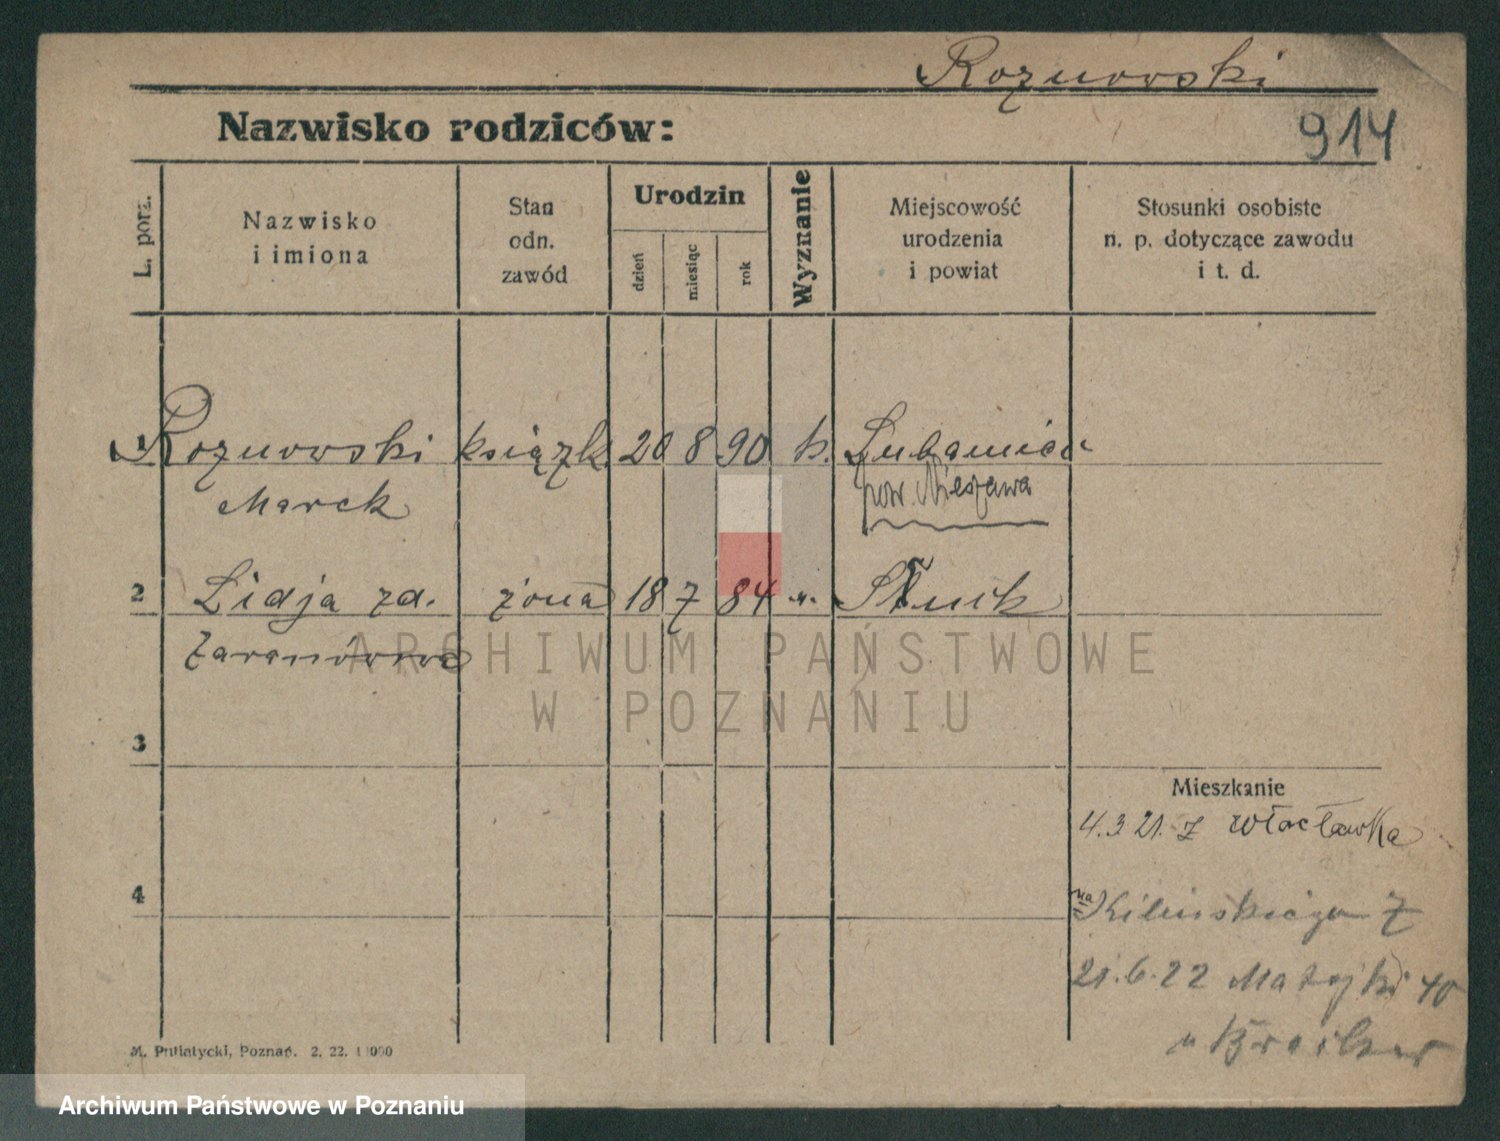 Roznowski
914
Nazwisko rodziców:
L. porz.
Nazwisko
i imiona
Stan
odn.
zawód
Urodzin
dzień
miesiąc
rok
Wyznanie
Miejscowość
urodzenia
i powiat
Stosunki osobiste
n. p. dotyczące zawodu
i t. d.
1 Roznowski książk. 20 8 90 k.
Marek pow. Nieszawa
2 Lidja zd. żona 18 7 84 Słuck
3
Mieszkanie
4.3 21. z Włocławka
4
na Kilińskiego 7
21.6.22 Matejki 40
M. Putiatycki, Poznań. 2. 22. 1 000
ARCHIWUM PAŃSTWOWE
W POZNANIU
Archiwum Państwowe w Poznaniu